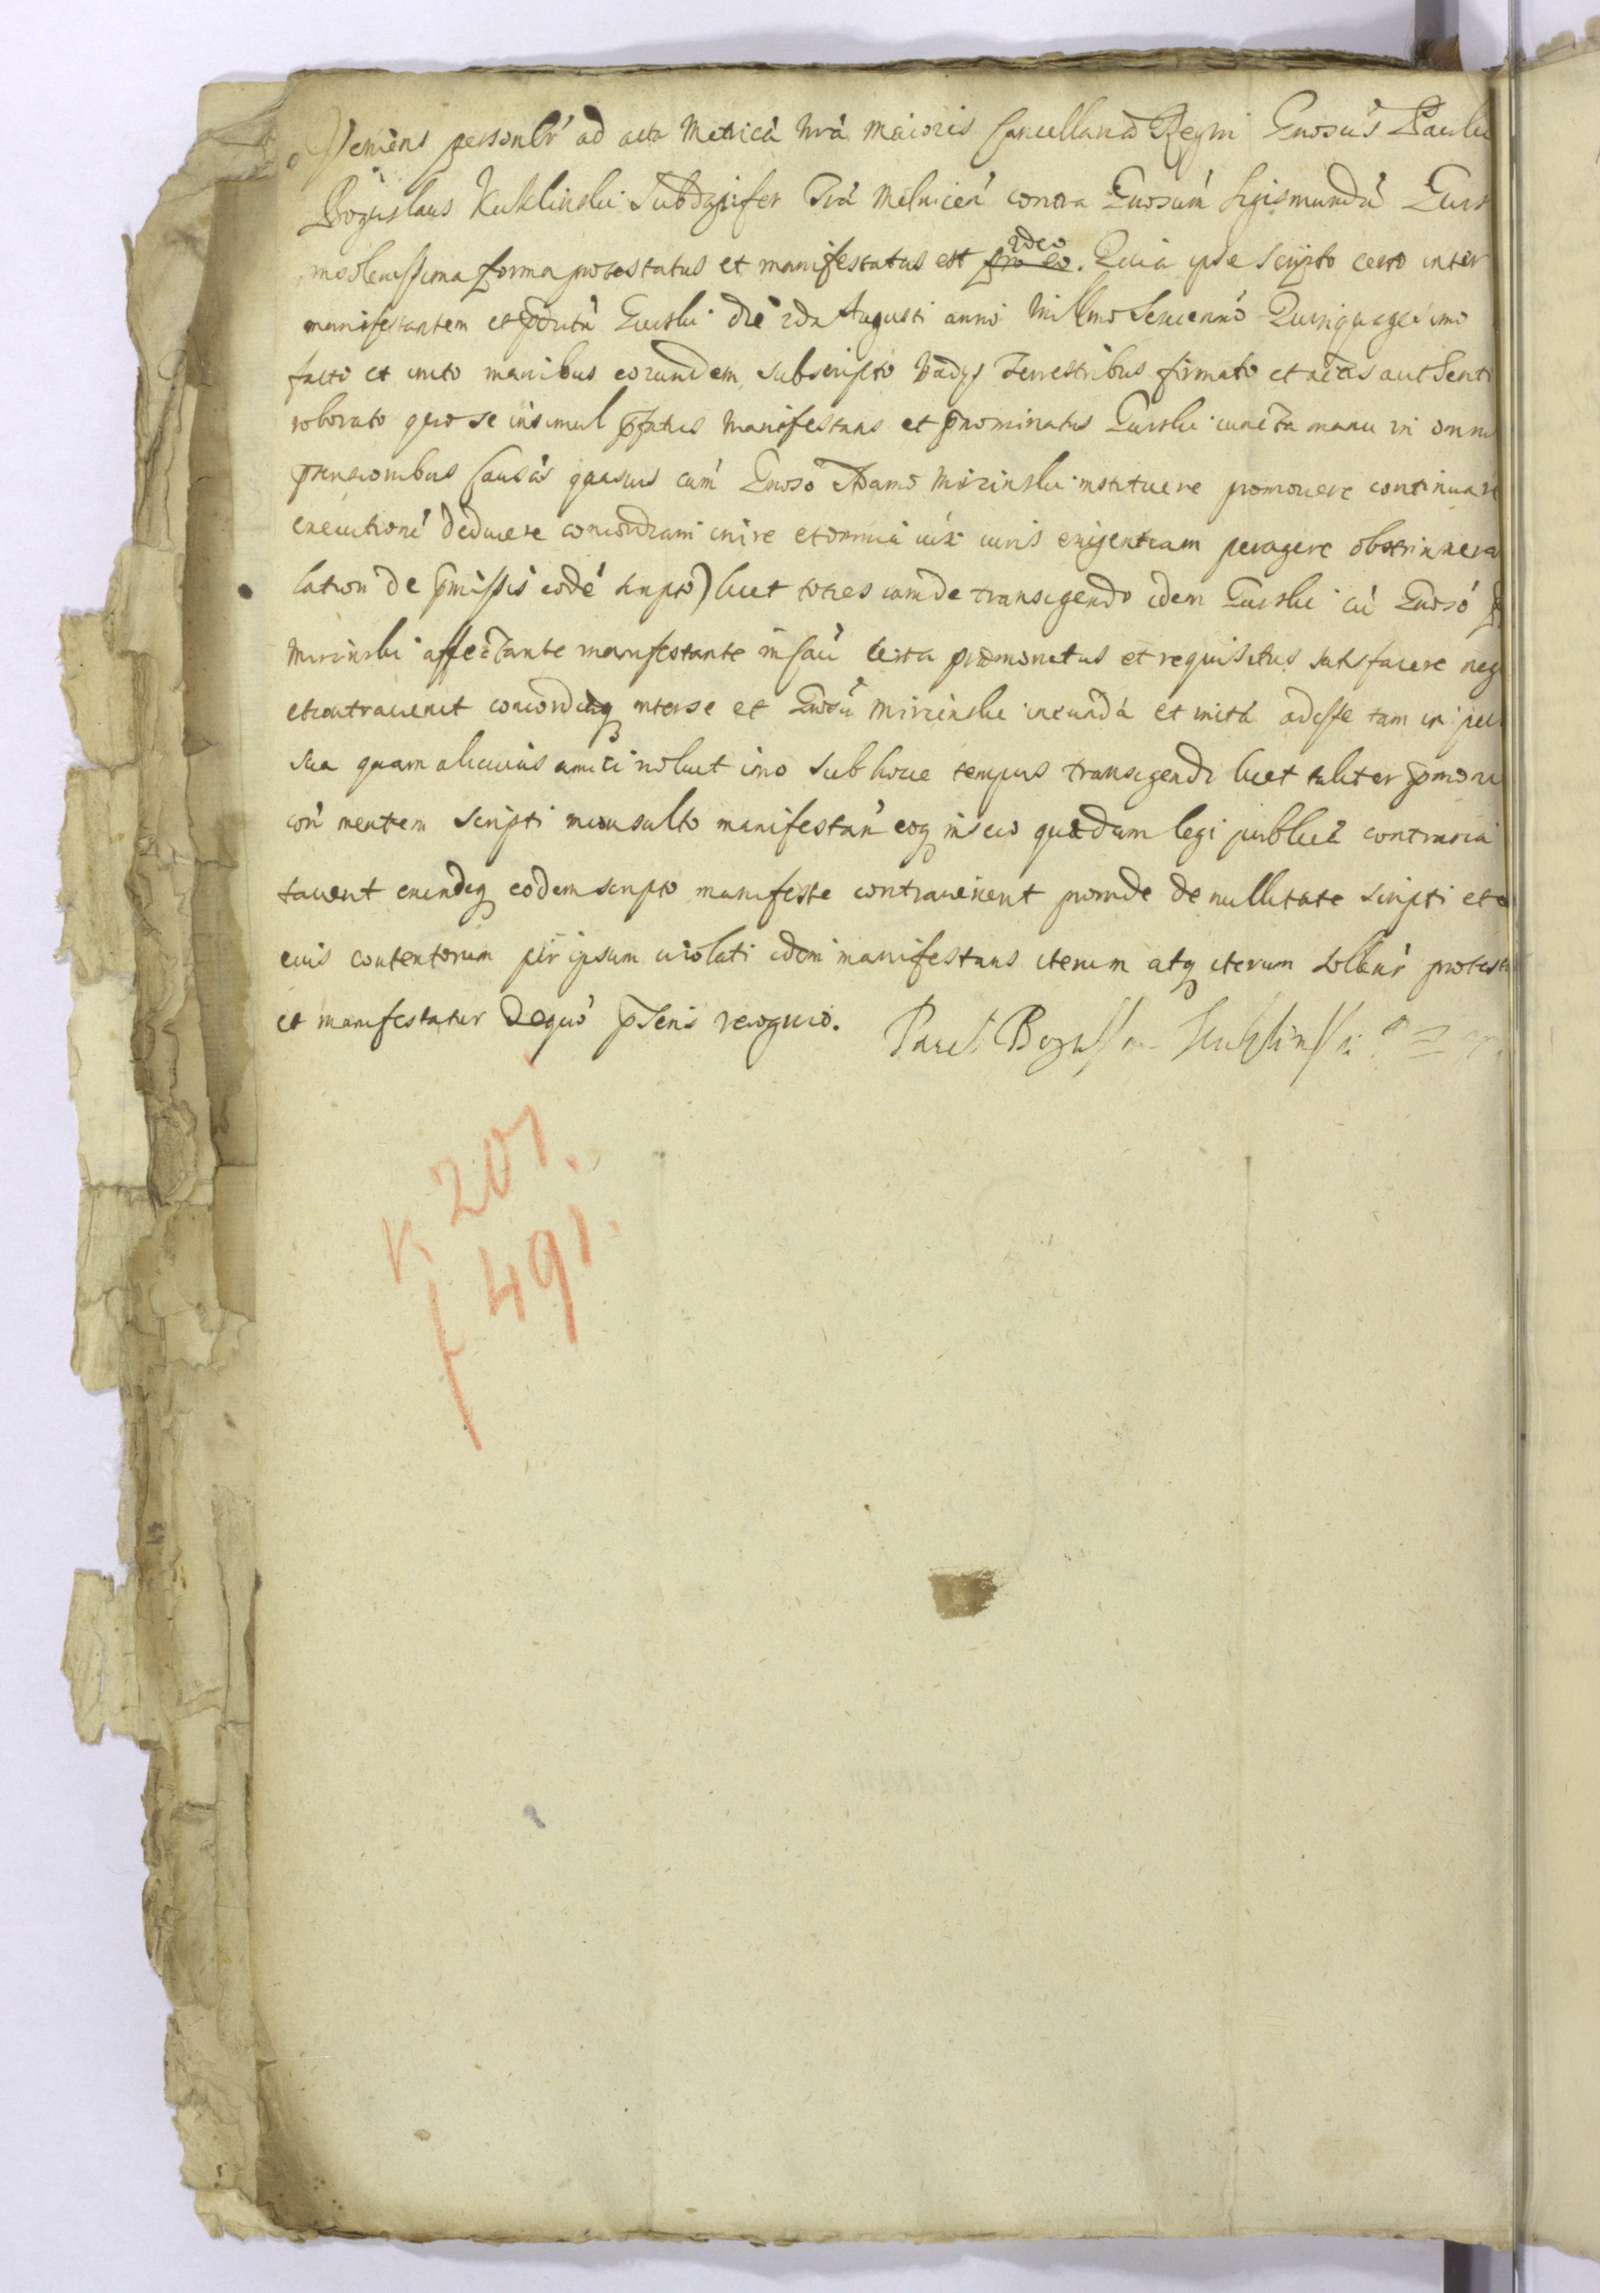 Veniens personlr ad acta Metrica Mra Maioris Cancellaria Regni Gnosus Paulu
Boguslaus Kuklinski Subdapifer Tra Mielnicen contra Gnosum Sigismundu Gurs
insolenissima forma protestatus et manifestatus est ideo. Quia ipse scripto certo inter
manifestantem et Gurski die 2da Augusti anno Millmo Sexcenmo Quinquagesimo
facto et inito manibus eorundem subscripto Vadys Terrestribus firmato et actis authenti
roborato quo se insimul pfatus Manifestans et pnominatus Gurski iuncta manu in omni
ptensionibus Causis quasuis cum Gnoso Adamo Mirzinski instituere promouere continuare
executione deducere concordiam inire et omnia iux iuris exigentiam peragere obstrinxera
lation de pmissis eode scripto) licet toties iam de transigendo idem Gurski cu Gnoso
Mirzinski affectante manifestante in Cau certa pmonitus et requisitus satisfacere neg
et contrauenit concordiaeq inter se et Gnosu Mirzinski ineunda et inita adesse tam in per
sua quam alicuius amici noluit imo sub hocce tempus transigendi licet taliter pmoni
con mentem scripti inconsulto manifestan eoq inscio quaedam legi publicae contraria
tauerit exindeq eodem scripto manifeste contrauenerit proinde de nullitate scripti et
eius contentorum per ipsum violati idem manifestans iterum atq iterum sollenr protest
et manifestatur de quo psens recognio. Paweł Bogusła Kuklinski
k. 201.
f 491.